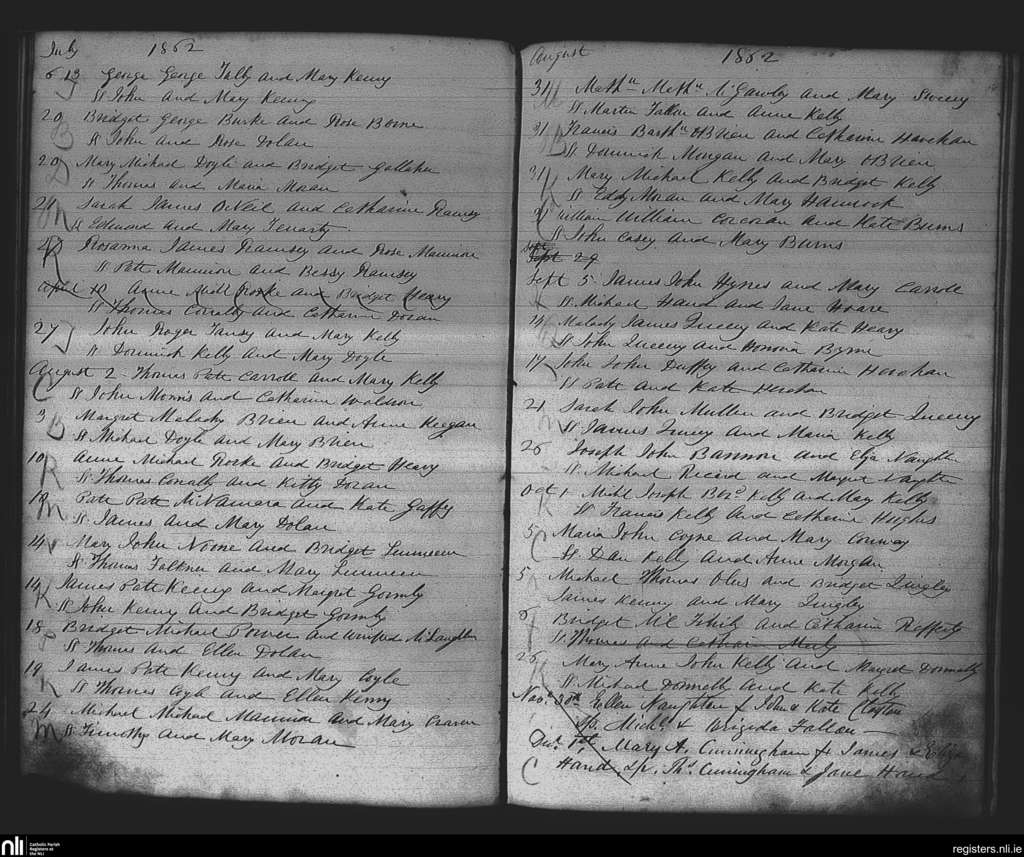 July 1862
6 13 George George Tally and Mary Kenny
Sp John and Mary Kenny
20 Bridget George Burke and Rose Byrne
Sp John and Rose Dolan
20 Mary Michael Doyle and Bridget Gallaher
Sp Thomas and Maria Moran
24 Sarah James O'Neil and Catharine Ramsy
Sp Edmond and Mary
Rosanna James Ramsey and Rose Mannion
Sp Patt Mannion and Bessy Ramsey
April 10 Anne Rorke and Bridget Heavy
Sp Thomas Conally and Catharin Doran
27 John Roger Tansy and Mary Kelly
Sp Dominick Kelly and Mary Doyle
August 2 Thomas Patt Carroll and Mary Kelly
Sp John Morris and Catharin Waldron
3 Margret Malachy Brien and Anne Keegan
Sp Michael Doyle and Mary Brien
10 Anne Michael Rorke and Bridget Heavy
Sp Thomas Conally and Kitty Doran
10 Patt Patt McNamara and Kate Gaffy
Sp James and Mary Dolan
14 Mary John Noone and Bridget
Sp Thomas Fallon and Mary
14 James Patt Kenny and Margret Gormly
Sp John Kenny and Bridget Gormly
18 Bridget Michael Power and Winifred McLaughlin
Sp Thomas and Ellen Dolan
19 James Patt Kenny and Mary Coyle
Sp Thomas Coyle and Ellen Kenny
24 Michael Michael Mannion and Mary Craven
Sp Timothy and Mary Moran
August 1862
31 Mathw Mathw McGawley and Mary Sweeny
Sp Martin Fallon and Anne Kelly
31 Francis Barthw OBrien and Catharine Hanahan
Sp Dominick Mongan and Mary OBrien
31 Mary Michael Kelly and Bridget Kelly
Sp Eddy Moran and Mary Hamrock
31 William William Corcoran and Kate Burns
Sp John Casey and Mary Burns
Sept
Sept 29
Sept 5 James John Hynes and Mary Carroll
Sp Michael Hand and Jane Hoare
14 Malachy James Queeny and Kate Heavy
Sp John Queeny and Honoria Byrne
17 John John Duffy and Catharin
Sp Patt and Kate
21 Sarah John Mullen and Bridget Queeny
Sp James and Maria Kelly
26 Joseph John Bannon and Eliza Naughten
Sp Michael Ricard and Margret Naughten
Oct 1 Michl Joseph Kelly and May Kelly
Sp Francis Kelly and Catharin Hughes
5 Maria John Coyne and Mary Conway
Sp Dan Kelly and Anne Morgan
5 Michael Thomas and Bridget Quigley
James Kenny and Mary Quigley
6 Bridget and Catharin Rafferty
Sp Thomas and Catharin
26 Mary Anne John Kelly and Margret Donnelly
Sp Michael Donnelly and Kate Kelly
Novr 30th Ellen Naughton f John & Kate Clayton
Sp Michl & Brigida Fallon
Decr 1st Mary A. Cunningham f James & Eliza
Hand. Sp. Ths Cuningham & Jane Hand
nli Catholic Parish
Registers at
the NLI
registers.nli.ie